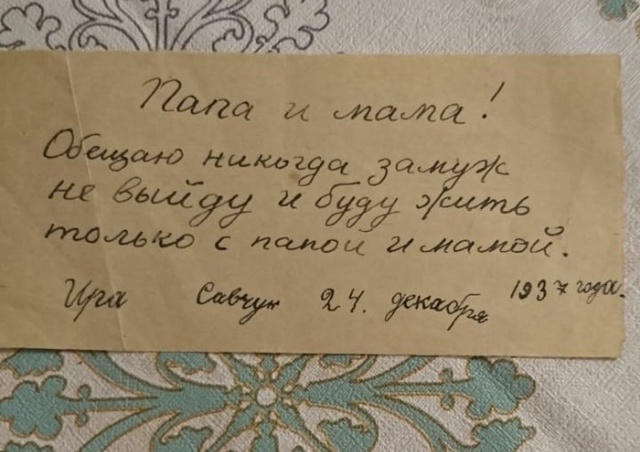 Папа и мама!
Обещаю никогда замуж
не выйду и буду жить
только с папой и мамой.
Ира Савчук 24. декабря 1937 года.